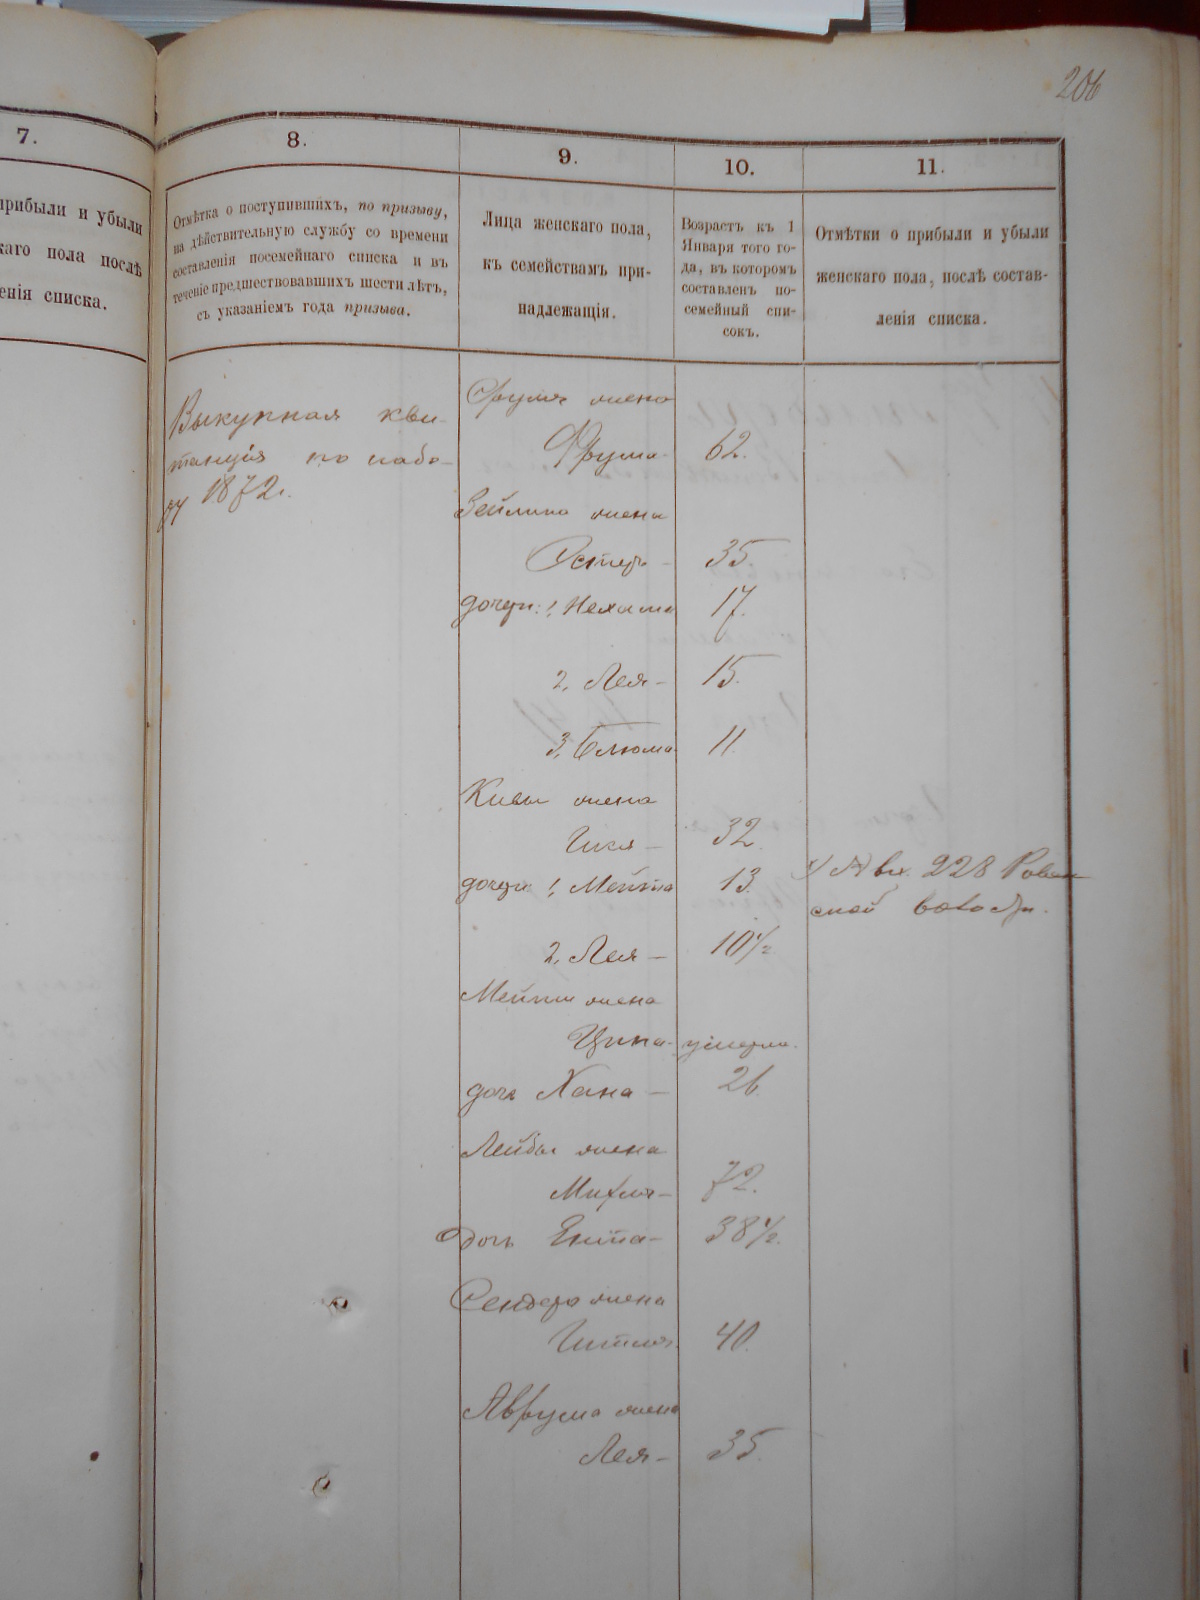 206
7.
прибыли и убыли
каго пола послѣ
енія списка.
8.
Отмѣтка о поступившихъ, по призыву,
на дѣйствительную службу со времени
составленія посемейнаго списка и въ
теченіе предшествовавшихъ шести лѣтъ,
съ указаніемъ года призыва.
9.
Лица женскаго пола,
къ семействамъ при-
надлежащія.
10.
Возрастъ къ 1
Января того го-
да, въ которомъ
составленъ по-
семейный спи-
сокъ.
11.
Отмѣтки о прибыли и убыли
женскаго пола, послѣ состав-
ленія списка.
Выкупная кви-
танція по набо-
ру 1872г.
Сруля жена
Фрума 62.
Зейлика жена
Эстеръ - 35.
дочери: 1, Нехама 17.
2, Лея - 15.
3, Блюма 11.
Кивы жена
32.
дочери 1, 13.
2, Лея - 10½
жена
умерла.
дочь Хана - 26.
Лейбы жена
Михля - 72.
дочь Ента - 38½.
Сендера жена
Гитля. 40.
Аврума жена
Лея - 35.
вх. 228